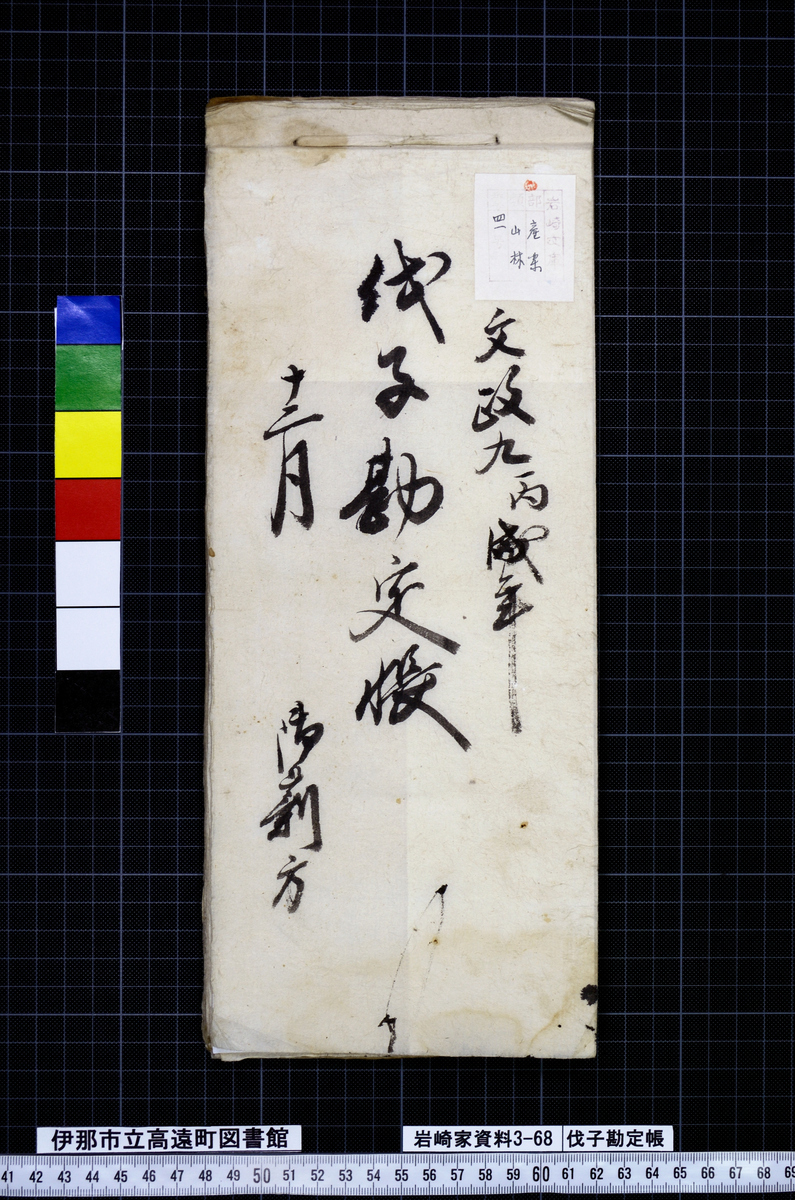 岩崎文書
部
産業
山林
四一
文政九丙戌年
伐子勘定帳
十二月
御薪方
伊那市立高遠町図書館
岩崎家資料3-68 伐子勘定帳
41 42 43 44 45 46 47 48 49 50 51 52 53 54 55 56 57 58 59 60 61 62 63 64 65 66 67 68 69